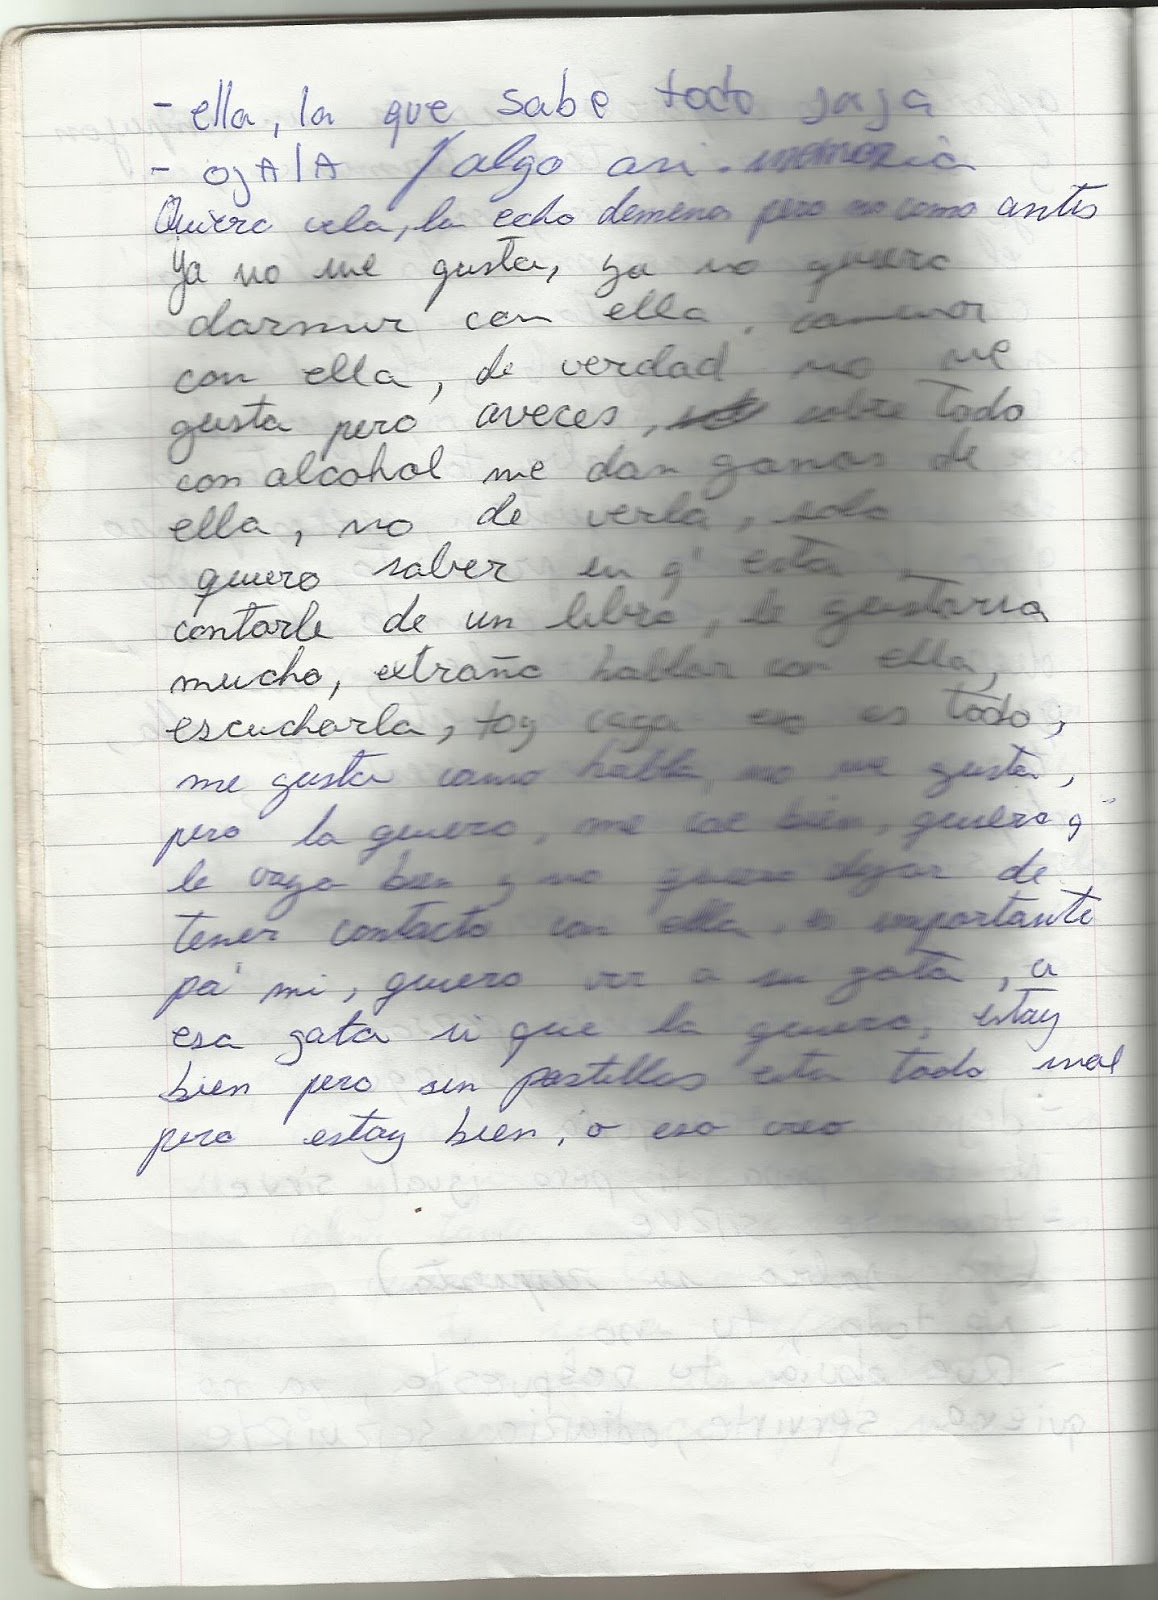 - ella, la que sabe todo jaja
- ojAlA / algo asi. memoria
Quiero vela, la echo demenos pero no como antes
Ya no me gusta, ya no quiero
dormir con ella, caminar
con ella, de verdad no me
gusta pero aveces, sobre todo
con alcohol me dan ganas de
ella, no de verla, solo
quiero saber en q' esta,
contarle de un libro, le gustaria
mucho, extraño hablar con ella,
escucharla, toy caga eso es todo,
me gusta como habla, no me gusta,
pero la quiero, me cae bien, quiero q'
le vaya bien y no quiero dejar de
tener contacto con ella, es importante
pa' mi, quiero ver a su gata, a
esa gata si que la quiero, estoy
bien pero sin pastillas esta todo mal
pero estoy bien, o eso creo